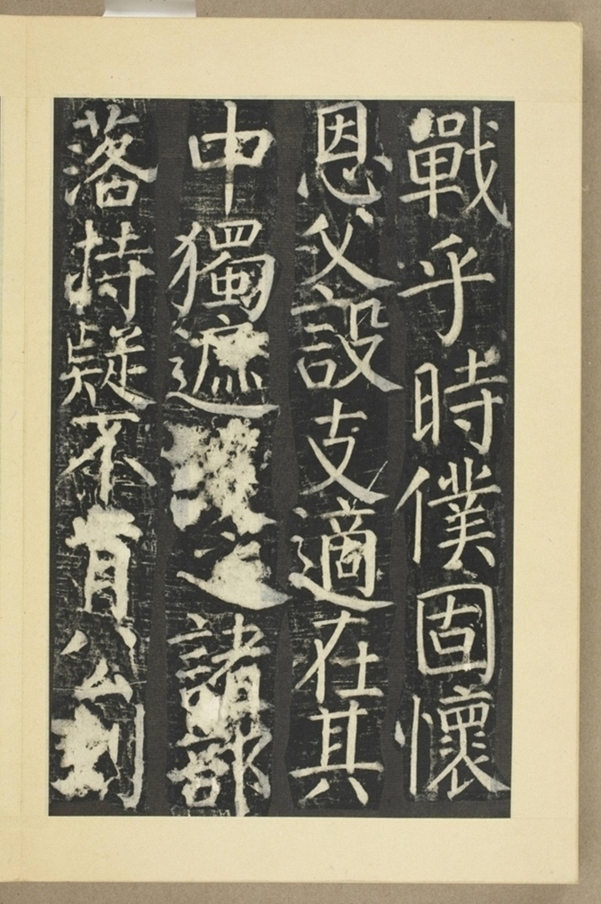 戰乎時僕固懷
恩父設支適在其
中獨遮護之諸部
落持疑不肯公刲